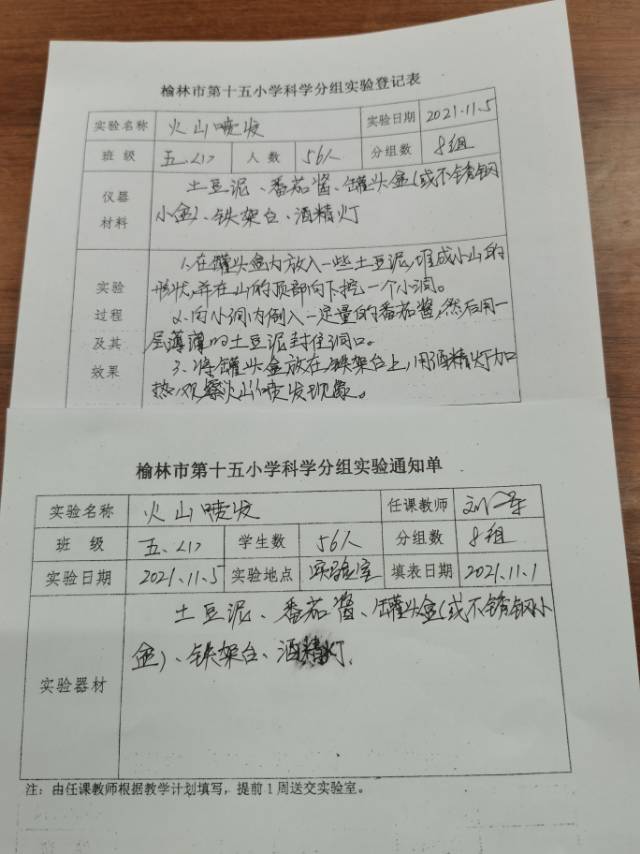 榆林市第十五小学科学分组实验登记表
实验名称 火山喷发 实验日期 2021.11.5
班级 五.(1) 人数 56人 分组数 8组
仪器材料 土豆泥、番茄酱、罐头盒(或不锈钢
小盒)、铁架台、酒精灯
实验过程及其效果 1.在罐头盒内放入一些土豆泥,堆成小山的
形状,并在山的顶部向下挖一个小洞。
2.向小洞内倒入一定量的番茄酱,然后用一
层薄薄的土豆泥封住洞口。
3.将罐头盒放在铁架台上,用酒精灯加
热,观察火山喷发现象。
榆林市第十五小学科学分组实验通知单
实验名称 火山喷发 任课教师 刘
班级 五.(1) 学生数 56人 分组数 8组
实验日期 2021.11.5 实验地点 实验室 填表日期 2021.11.1
实验器材 土豆泥、番茄酱、罐头盒(或不锈钢小
盒)、铁架台、酒精灯.
注:由任课教师根据教学计划填写,提前1周送交实验室。